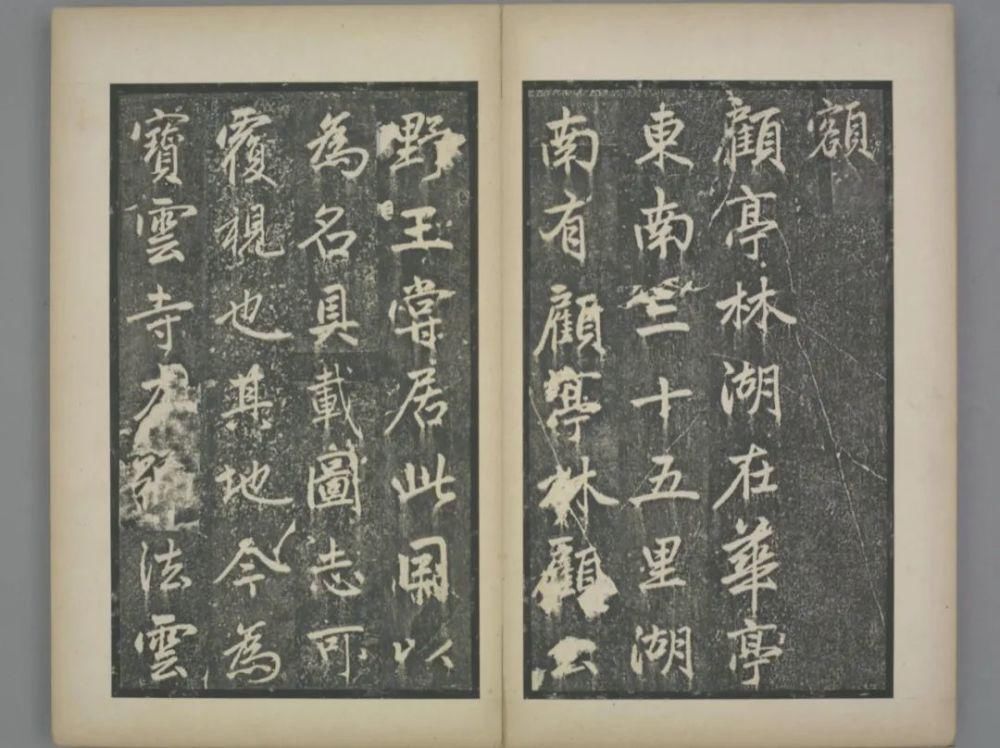 額
顧亭林湖在華亭
東南三十五里湖
南有顧亭林顧公
野王嘗居此因以
為名具載圖志可
覆視也其地今為
寶雲寺法雲